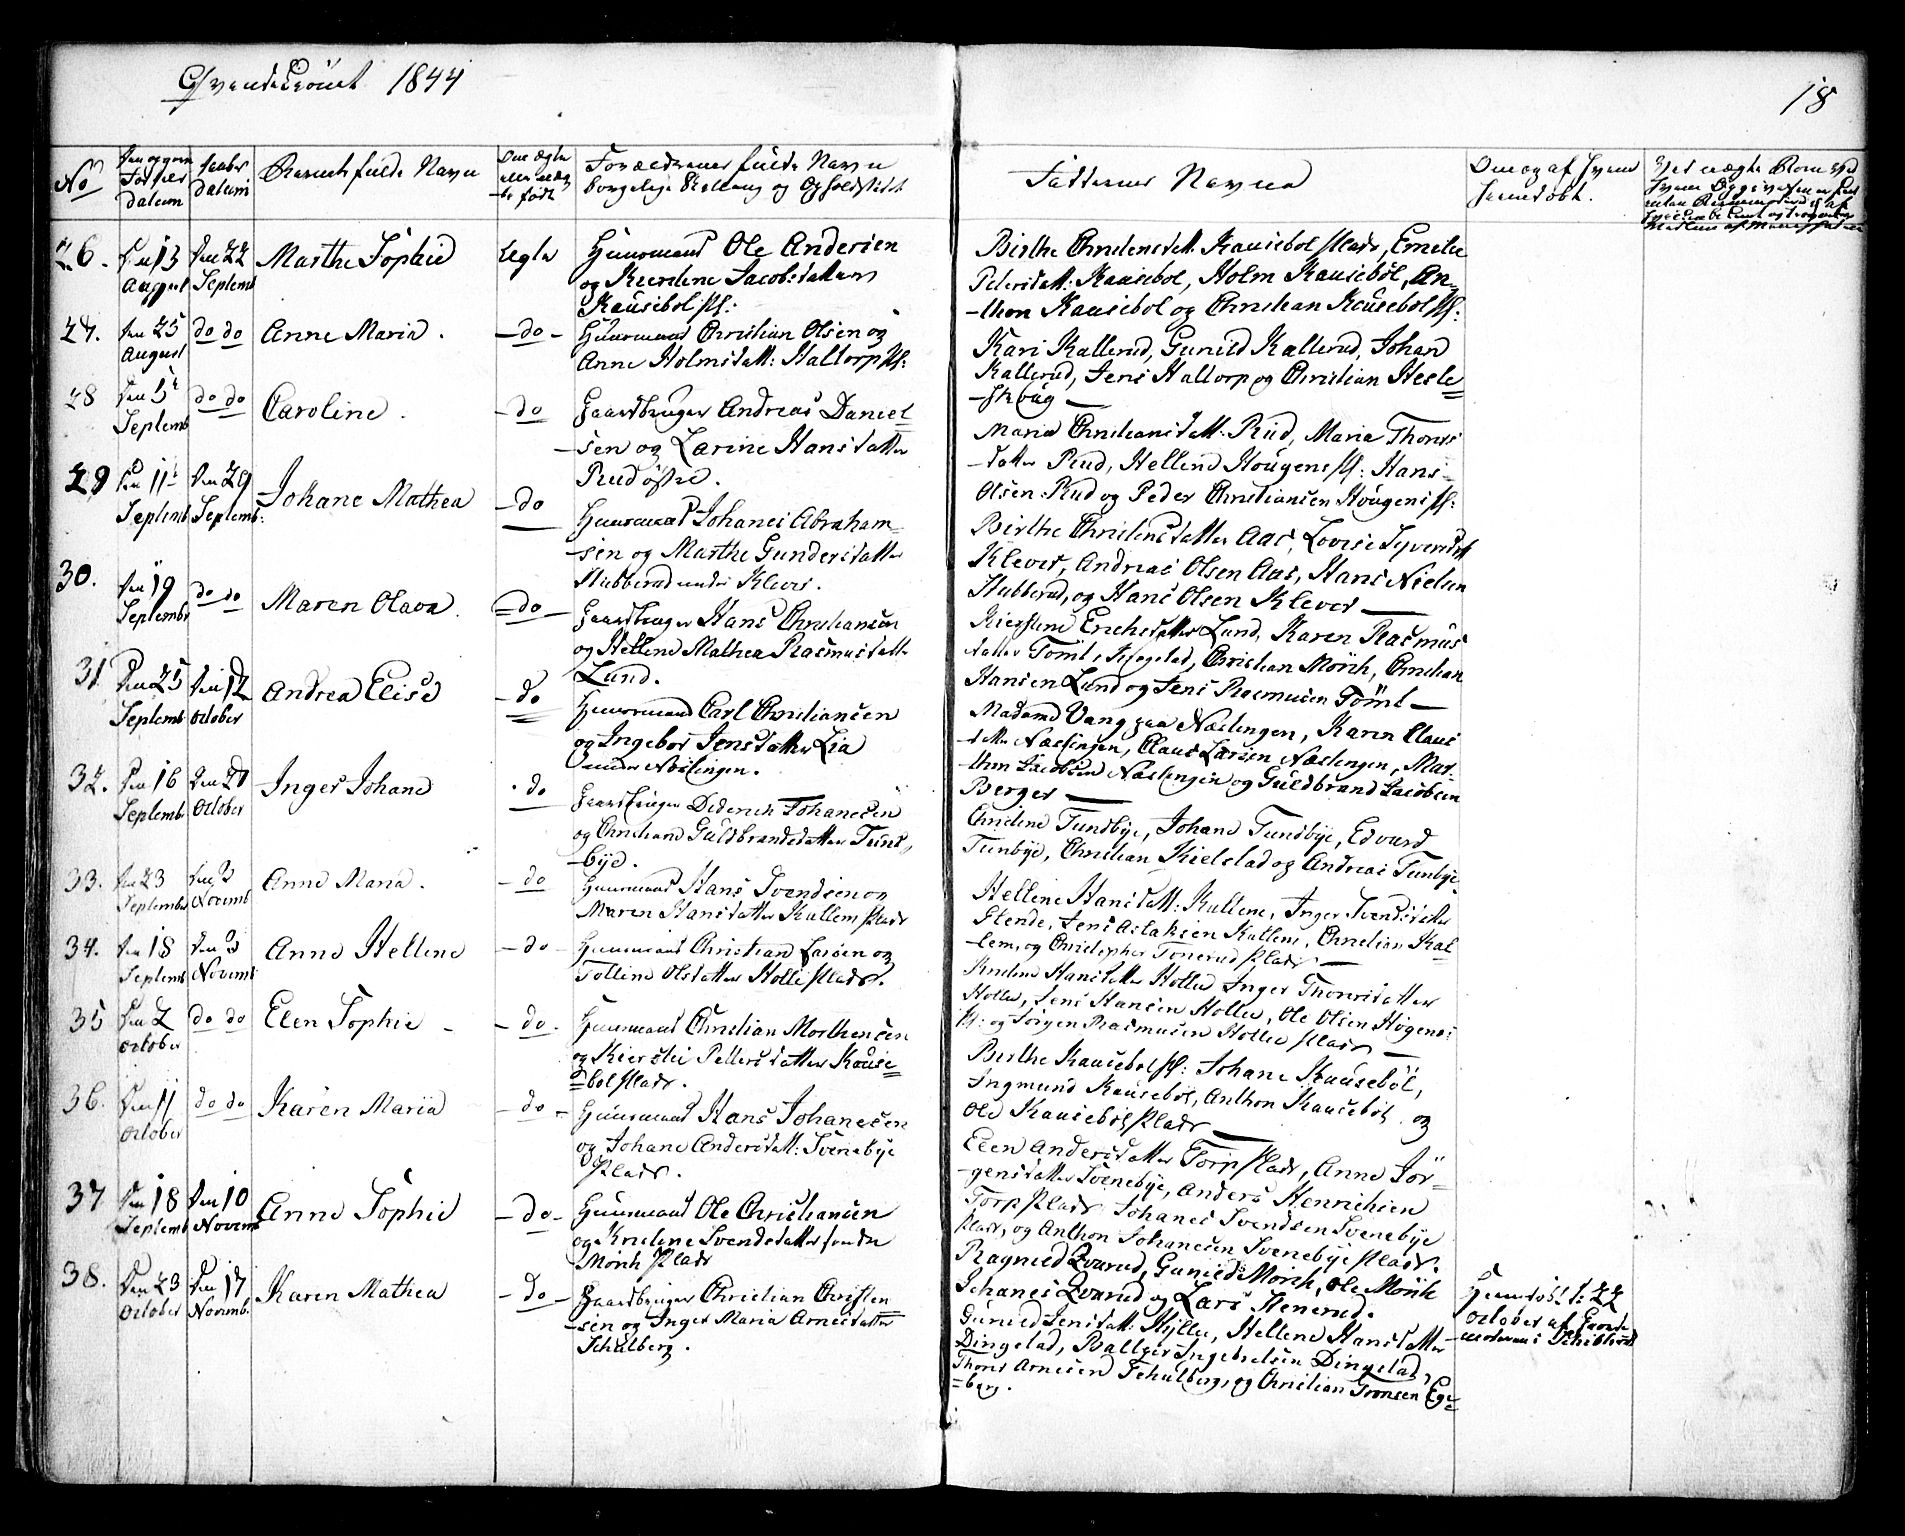 Qvindekiönet 1844
18
No
Den og gien
Fødsels
Datum
Daabs
Datum
Barnets fulde Navn
Om Ægte
eller uæg
te født
Forældrenes fulde Navn
borgelige Stilling og Opholdsstæd
Faddernes Navne
Om og af hvem
hiemdøbt.
26.
Den 13
August
Den 22
Septemb
Marthe Sophie
Egte
Huusmand Ole Andersen
og Kierstine Jacobsdatter
Kausebol Pl:
Birthe Christensdatt. Kausebol Plads, Emelie
Petersdatt: Kausebol, Holm Kausebøl, An-
-thon Kausebol og Christian Kausebol Pl:
27.
den 25
August
do do
Anne Maria.
- do -
Huusmand Christian Olsen og
Anne Holmsdatt: Haltorp Pl:
Kari Kallerud, Gunild Kallerud, Johan
Kallerud, Jens Haltorp og Christian Hesle-
-skoug —
28
Den 5te
Septemb
do do
Caroline.
- do
Gaardbruger Andreas Daniel-
-sen og Larine Hansdatter
Rud østre.
Maria Christiansdatt. Rud, Maria Thores
-datter Rud, Hellene Hougens Pl: Hans
Olsen Rud og Peder Christiansen Hougens Pl:
29
Den 11te
Septemb
Den 29
Septemb:
Johane Mathea
- do
Huusmand Johanes Abraham-
-sen og Marthe Gundersdatter
Stubberud under Klever.
Birthe Christensdatter Aas, Lovise Syversdtt
Klever, Andreas Olsen Aas, Hans Nielsen
Stubberud, og Hans Olsen Klever —
30.
Den 19
Septembr
do do
Maren Olava.
- do -
Gaardbruger Hans Christiansen
og Hellene Mathea Rasmusdatt
Lund.
Kierstine Erichsdatter Lund, Karen Rasmus
datter Tømt, Christian Mörch, Christian
Hansen Lund og Jens Rasmusen Tömt —
31
Den 25
Septemb
Den 12
October
Andrea Elise
- do
Huusmand Carl Christiansen
og Ingebor Jensdatter Lia
under Næslingen.
Madame Vang paa Næslingen, Karen Claus
datter Næslingen, Claus Larsen Næslingen, Mar-
-thin Jacobsen Næslingen og Guldbrand Jacobsen
Berger —
32.
Den 16
Septemb
Den 20
October
Inger Johane
- do
Gaardbruger Dederich Johanesen
og Christiane Guldbrandsdatter Tund-
-bye.
Christine Tundbye, Johane Tundbye, Edvard
Tunbye, Christian Kielstad og Andreas Tunbye
33.
den 23
Septembr
Den 3
Novemb
Anne Maria.
- do
Huusmand Hans Svendsen og
Maren Hansdatter Kullem Plads
Hellene Hansdatt: Kullem, Inger Svendsdatter
Stende, Jens Aslaksen Kullem, Christian Kul-
-lem, og Christopher Tonerud Plads —
34.
den 18
Septemb
Den 3
Novemb
Anne Hellene
- do -
Huusmand Christian Larsen og
Tolline Olsdatter Holli Plads.
Kristine Hansdatter Hollie Inger Thoresdatter
Hollie, Jens Hansen Hollie, Ole Olsen Högens
Pl: og Jörgen Rasmusen Hollie Plads —
35
Den 2
October
do do
Elen Sophie -
- do -
Huusmand Christian Morthensen
og Kierstei Pettersdatter Kause-
-bol Plads.
Berthe Kausebol Pl: Johane Kausebøl,
Ingmund Kausebøl, Anthon Kausebøl og
Ole Kausebøl Plads —
36.
Den 11
October
do do
Karen Maria
- do -
Huusmand Hans Johanesen
og Johane Andersdatt: Svenebye
Plads.
Elen Andersdatter Torp Plads, Anne Jör-
-gensdatter Svenebye, Anders Henrichsen
Torp Plads Johanes Svendsen Svenebye
Plads, og Anthon Johanesen Svenebye Plads.
37
Den 18
Septemb
Den 10
Novemb
Anne Sophie
- do -
Huusmand Ole Christiansen
og Kristine Svendsdatter søndre
Mörch Plads
Ragnild Qvarud, Gunild Mörch, Ole Mörch
Johanes Qvarud og Lars Stenerud.
38.
Den 23
October
Den 17
Novemb.
Karen Mathea
- do -
Gaardbruger Christian Christen-
-sen og Inger Maria Arnesdatter
Schulberg.
Gunild Jensdatt: Hyllie, Hellene Hansdatter
Dingstad, Ballger Ingebretsen Dingstad,
Thores Arnesen Schulberg, og Christian Tronsen Ege-
-berg.
Hiemdöbt d: 22
October af Jorde-
moderen